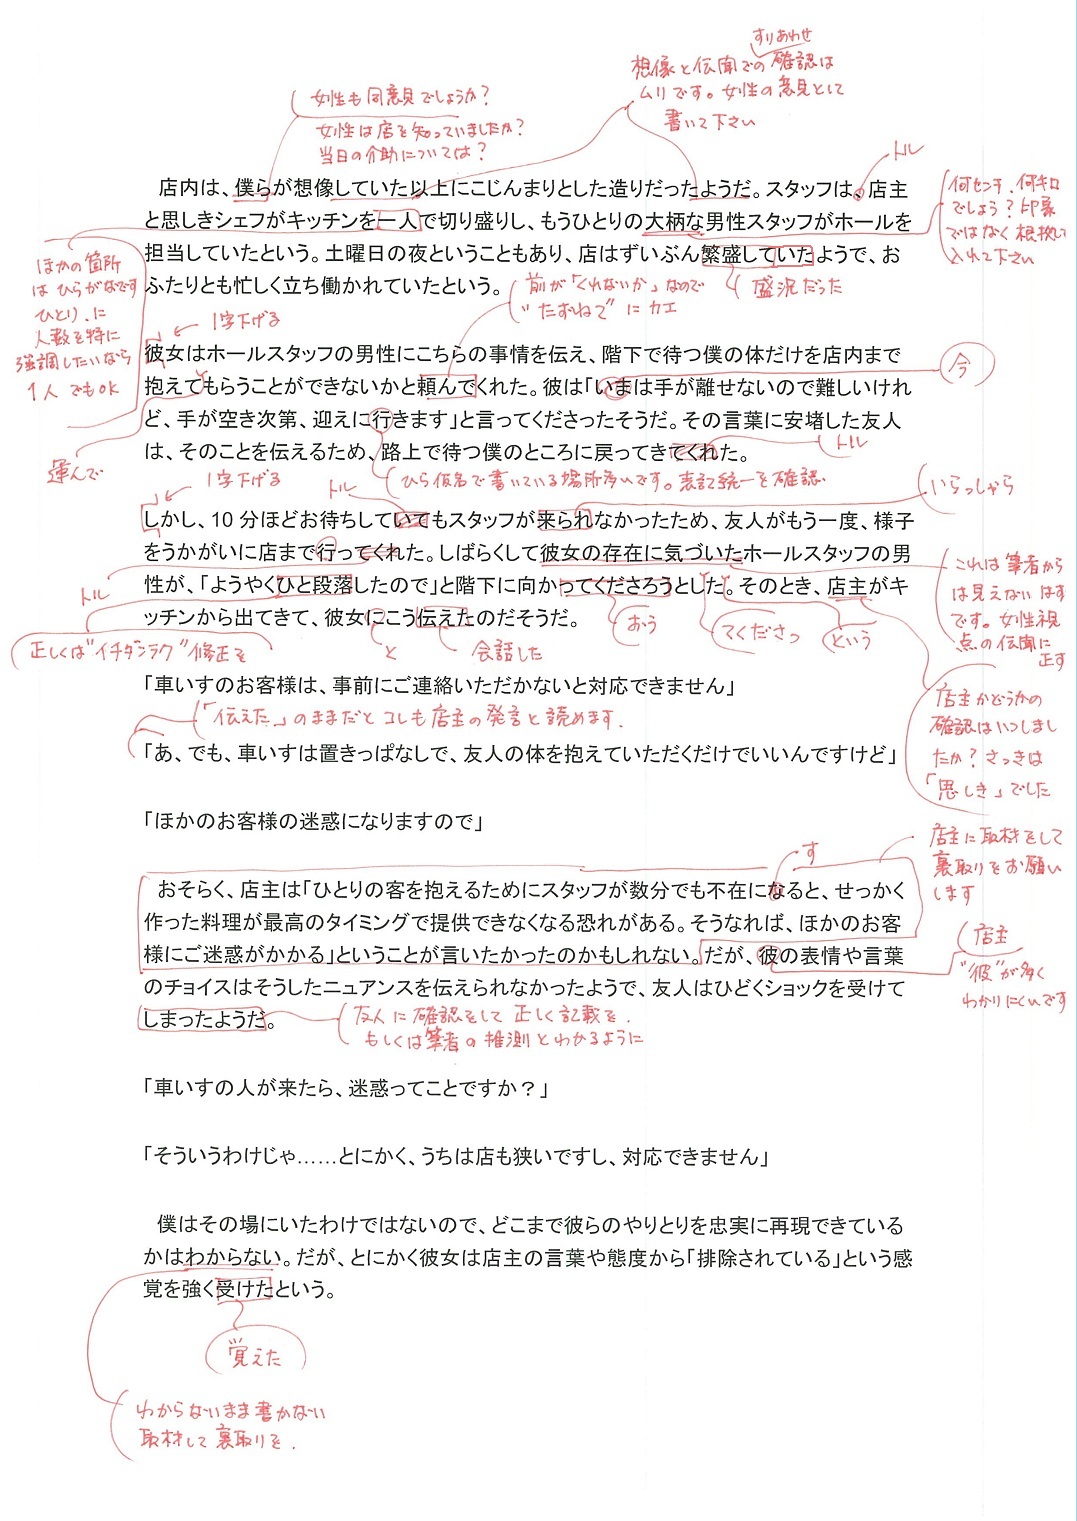 すりあわせ
想像と伝聞での確認は
ムリです。女性の意見として
書いて下さい
女性も同意見でしょうか？
女性は店を知っていましたか？
当日の介助については？
トル
店内は、僕らが想像していた以上にこじんまりとした造りだったようだ。スタッフは、店主
と思しきシェフがキッチンを一人で切り盛りし、もうひとりの大柄な男性スタッフがホールを
担当していたという。土曜日の夜ということもあり、店はずいぶん繁盛していたようで、お
ふたりとも忙しく立ち働かれていたという。
何センチ、何キロ
でしょう？印象
ではなく根拠
入れて下さい
ほかの箇所
はひらがなです
ひとり、に
人数を特に
強調したいなら
1人でもOK
前が「くれないか」なので
"たずねて"にカエ
盛況だった
1字下げる
彼女はホールスタッフの男性にこちらの事情を伝え、階下で待つ僕の体だけを店内まで
抱えてもらうことができないかと頼んでくれた。彼は「いまは手が離せないので難しいけれ
ど、手が空き次第、迎えに行きます」と言ってくださったそうだ。その言葉に安堵した友人
は、そのことを伝えるため、路上で待つ僕のところに戻ってきてくれた。
今
トル
運んで
ひら仮名で書いている場所多いです。表記統一を確認
1字下げる
トル
いらっしゃら
しかし、10分ほどお待ちしていてもスタッフが来られなかったため、友人がもう一度、様子
をうかがいに店まで行ってくれた。しばらくして彼女の存在に気づいたホールスタッフの男
性が、「ようやくひと段落したので」と階下に向かってくださろうとした。そのとき、店主がキ
ッチンから出てきて、彼女にこう伝えたのだそうだ。
トル
正しくは"イチダンラク"修正を
と
会話した
おう
てくださっ
という
これは筆者から
は見えないはず
です。女性視
点の伝聞に
正す
「車いすのお客様は、事前にご連絡いただかないと対応できません」
「伝えた」のままだとコレも店主の発言と読めます。
店主かどうかの
確認はいつしまし
たか？さっきは
「思しき」でした
「あ、でも、車いすは置きっぱなしで、友人の体を抱えていただくだけでいいんですけど」
「ほかのお客様の迷惑になりますので」
す
店主に取材をして
裏取りをお願い
します
おそらく、店主は「ひとりの客を抱えるためにスタッフが数分でも不在になると、せっかく
作った料理が最高のタイミングで提供できなくなる恐れがある。そうなれば、ほかのお客
様にご迷惑がかかる」ということが言いたかったのかもしれない。だが、彼の表情や言葉
のチョイスはそうしたニュアンスを伝えられなかったようで、友人はひどくショックを受けて
しまったようだ。
店主
"彼"が多く
わかりにくいです
友人に確認をして正しく記載を。
もしくは筆者の推測とわかるように
「車いすの人が来たら、迷惑ってことですか？」
「そういうわけじゃ……とにかく、うちは店も狭いですし、対応できません」
僕はその場にいたわけではないので、どこまで彼らのやりとりを忠実に再現できている
かはわからない。だが、とにかく彼女は店主の言葉や態度から「排除されている」という感
覚を強く受けたという。
覚えた
わからないまま書かない
取材して裏取りを。